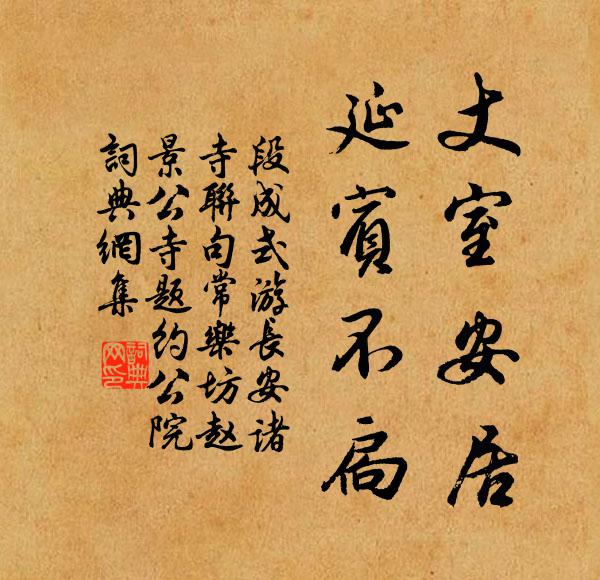 丈室安居
延賓不扃
段成式游長安诸
寺聯句常樂坊赵
景公寺題约公院
詞典網集
詞典网印